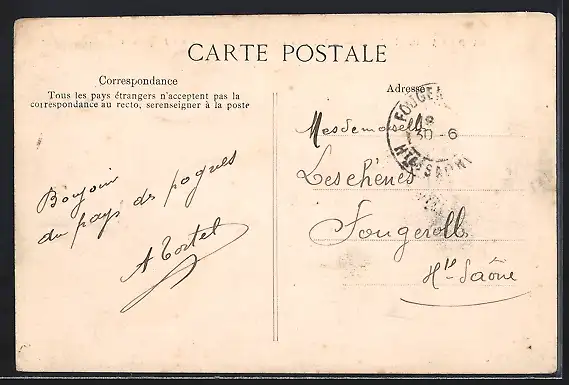 CARTE POSTALE
Correspondance
Tous les pays étrangers n'acceptent pas la
correspondance au recto, serenseigner à la poste
Adresse
Bonjour
du pays des pognes
A Tortel
FOUGE
30-6
HTE SAONE
Mesdemoiselles
Leschênes
Fougerolles
Hte Saône